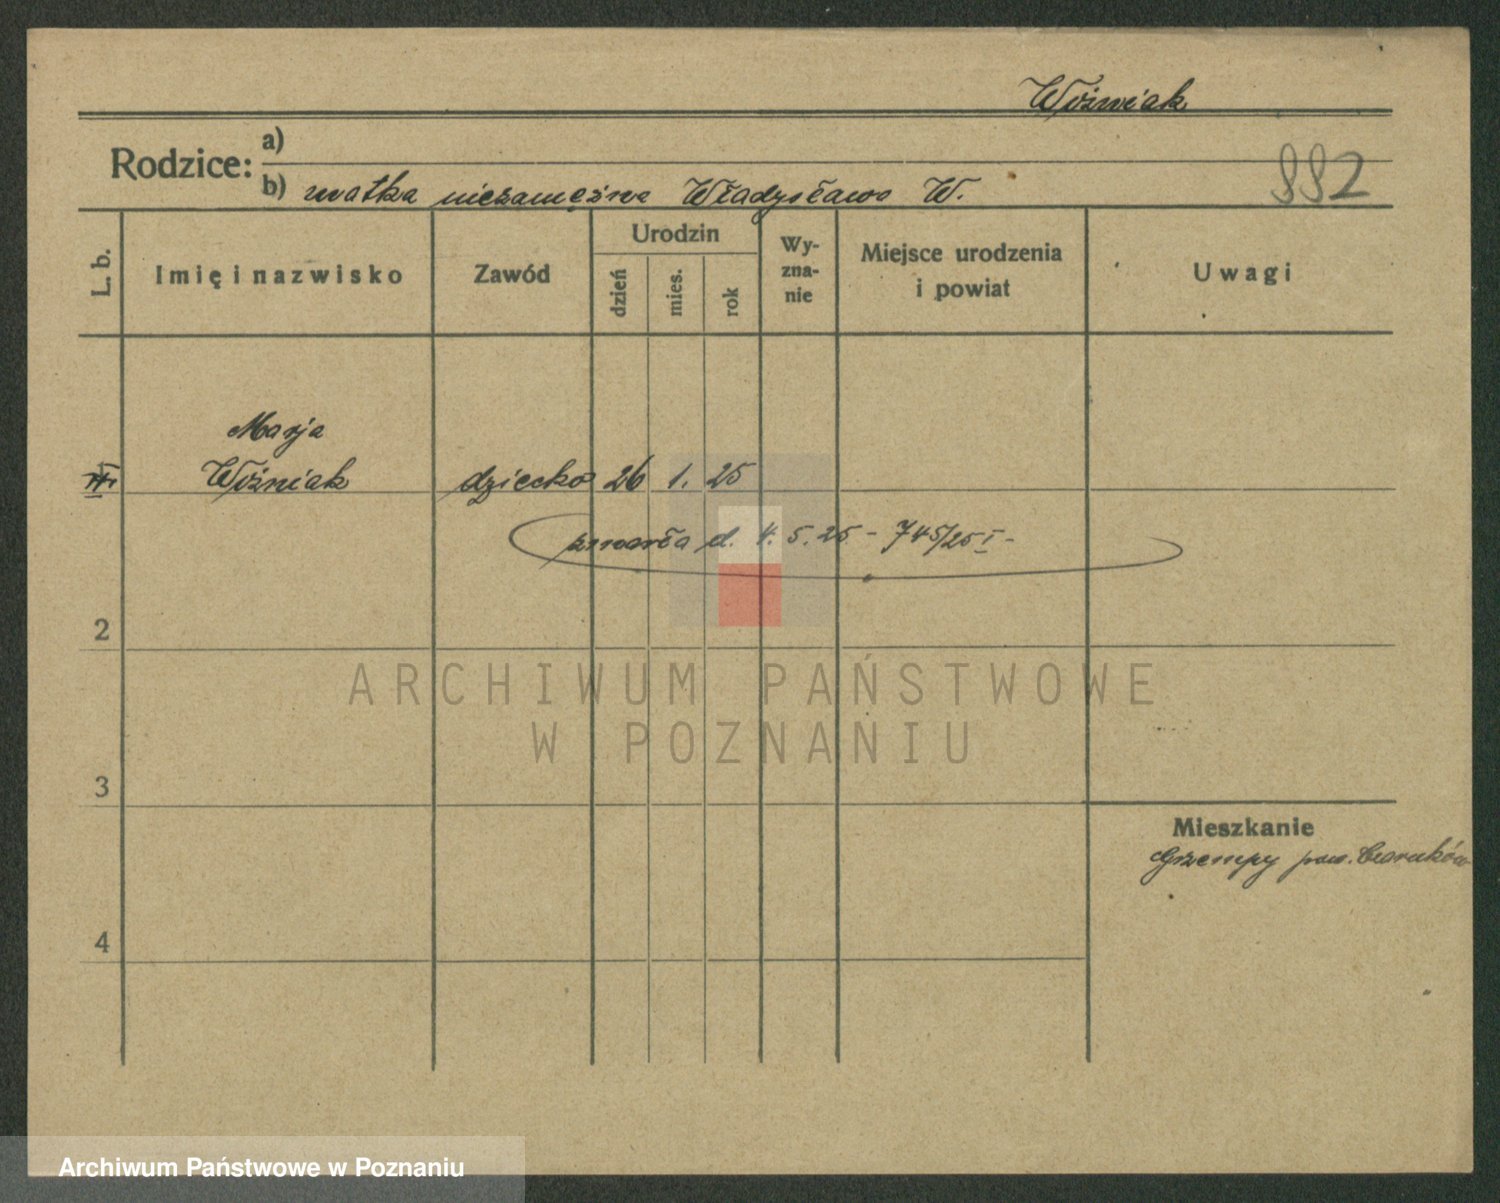 Woźniak
Rodzice:
a)
b) matka niezamężna Władysława W.
992
L. b.
Imię i nazwisko
Zawód
Urodzin
dzień
mies.
rok
Wy-
zna-
nie
Miejsce urodzenia
i powiat
Uwagi
Marja
Woźniak dziecko 26 1. 25
zmarła d. 4. 5. 25 - 745/25 I -
2
ARCHIWUM PAŃSTWOWE
W POZNANIU
3
Mieszkanie
Grzempy pow. Czarnków
4
Archiwum Państwowe w Poznaniu